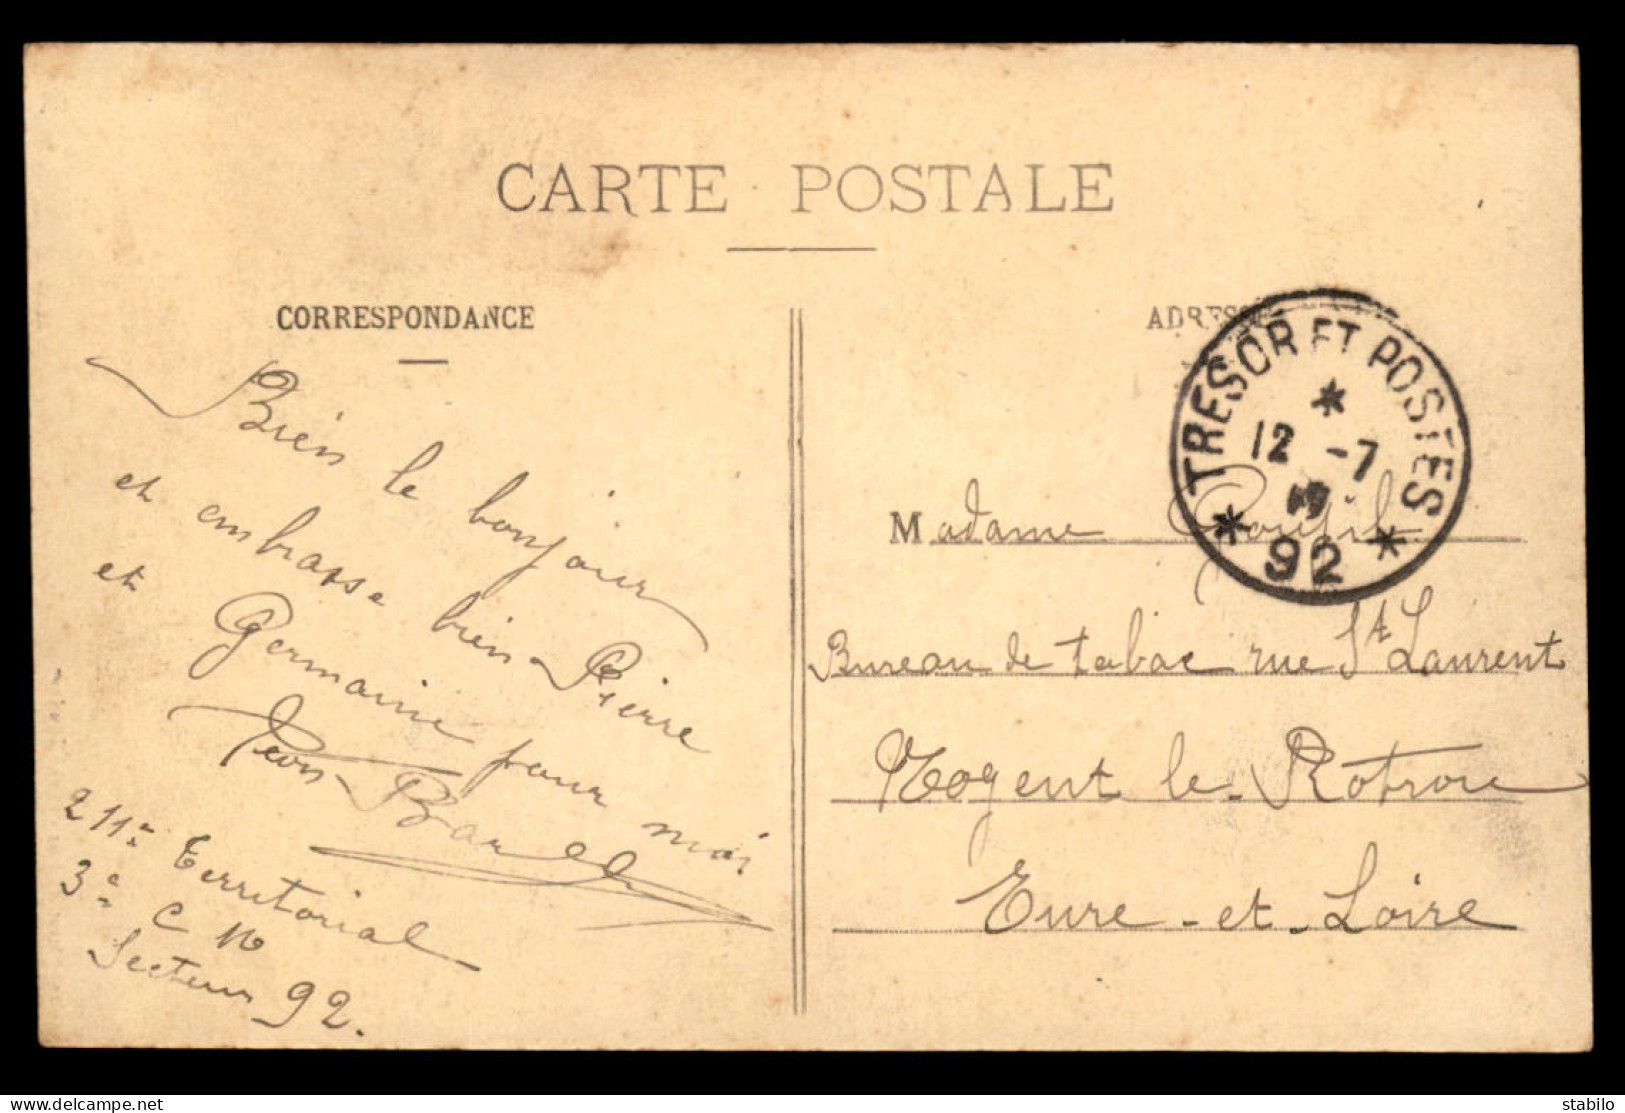 CARTE POSTALE
CORRESPONDANCE
Bien le bonjour
et embrasse bien Pierre
et Germaine pour moi
Léon
211e Territorial
3e C
Secteur 92.
ADRESSE
TRESOR ET POSTES
12 -7
92
Madame
Bureau de tabac rue St Laurent
Nogent le Rotrou
Eure-et-Loire
www.delcampe.net
stabilo